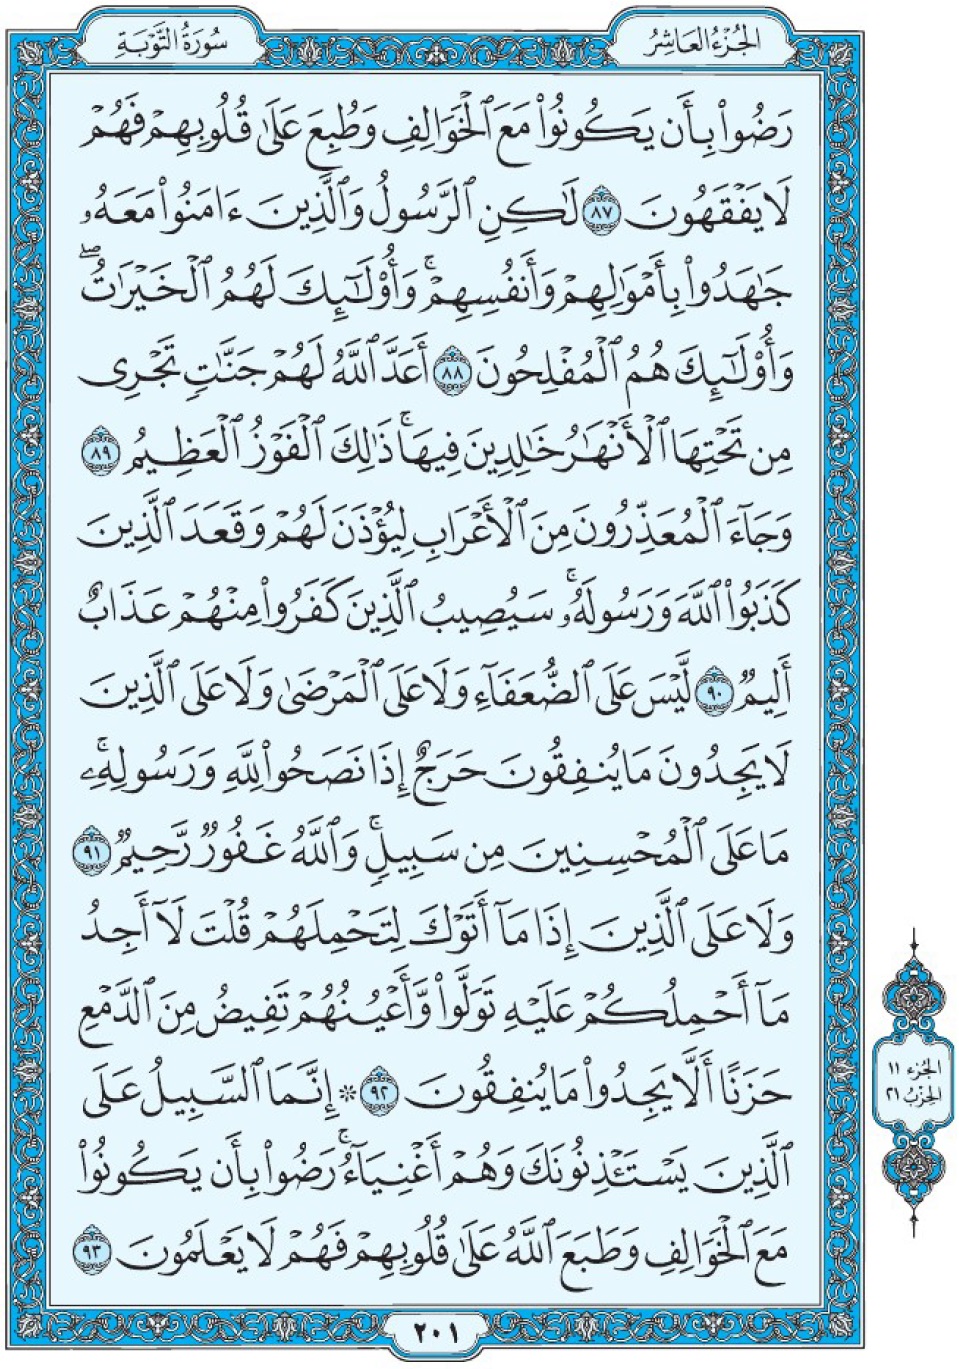 الجُزْءُ العَاشِرُ
سُورَةُ التَّوْبَةِ
رَضُواْ بِأَن يَكُونُواْ مَعَ ٱلْخَوَالِفِ وَطُبِعَ عَلَىٰ قُلُوبِهِمْ فَهُمْ
لَا يَفْقَهُونَ ٨٧ لَٰكِنِ ٱلرَّسُولُ وَٱلَّذِينَ ءَامَنُواْ مَعَهُۥ
جَٰهَدُواْ بِأَمْوَٰلِهِمْ وَأَنفُسِهِمْۚ وَأُوْلَٰٓئِكَ لَهُمُ ٱلْخَيْرَٰتُۖ
وَأُوْلَٰٓئِكَ هُمُ ٱلْمُفْلِحُونَ ٨٨ أَعَدَّ ٱللَّهُ لَهُمْ جَنَّٰتٍ تَجْرِى
مِن تَحْتِهَا ٱلْأَنْهَٰرُ خَٰلِدِينَ فِيهَاۚ ذَٰلِكَ ٱلْفَوْزُ ٱلْعَظِيمُ ٨٩
وَجَآءَ ٱلْمُعَذِّرُونَ مِنَ ٱلْأَعْرَابِ لِيُؤْذَنَ لَهُمْ وَقَعَدَ ٱلَّذِينَ
كَذَبُواْ ٱللَّهَ وَرَسُولَهُۥۚ سَيُصِيبُ ٱلَّذِينَ كَفَرُواْ مِنْهُمْ عَذَابٌ
أَلِيمٌ ٩٠ لَّيْسَ عَلَى ٱلضُّعَفَآءِ وَلَا عَلَى ٱلْمَرْضَىٰ وَلَا عَلَى ٱلَّذِينَ
لَا يَجِدُونَ مَا يُنفِقُونَ حَرَجٌ إِذَا نَصَحُواْ لِلَّهِ وَرَسُولِهِۦۚ
مَا عَلَى ٱلْمُحْسِنِينَ مِن سَبِيلٍۚ وَٱللَّهُ غَفُورٌ رَّحِيمٌ ٩١
وَلَا عَلَى ٱلَّذِينَ إِذَا مَآ أَتَوْكَ لِتَحْمِلَهُمْ قُلْتَ لَآ أَجِدُ
مَآ أَحْمِلُكُمْ عَلَيْهِ تَوَلَّواْ وَّأَعْيُنُهُمْ تَفِيضُ مِنَ ٱلدَّمْعِ
حَزَنًا أَلَّا يَجِدُواْ مَا يُنفِقُونَ ٩٢ * إِنَّمَا ٱلسَّبِيلُ عَلَى
ٱلَّذِينَ يَسْتَـْٔذِنُونَكَ وَهُمْ أَغْنِيَآءُۚ رَضُواْ بِأَن يَكُونُواْ
مَعَ ٱلْخَوَالِفِ وَطَبَعَ ٱللَّهُ عَلَىٰ قُلُوبِهِمْ فَهُمْ لَا يَعْلَمُونَ ٩٣
الجُزء ١١
الحِزب ٢١
٢٠١